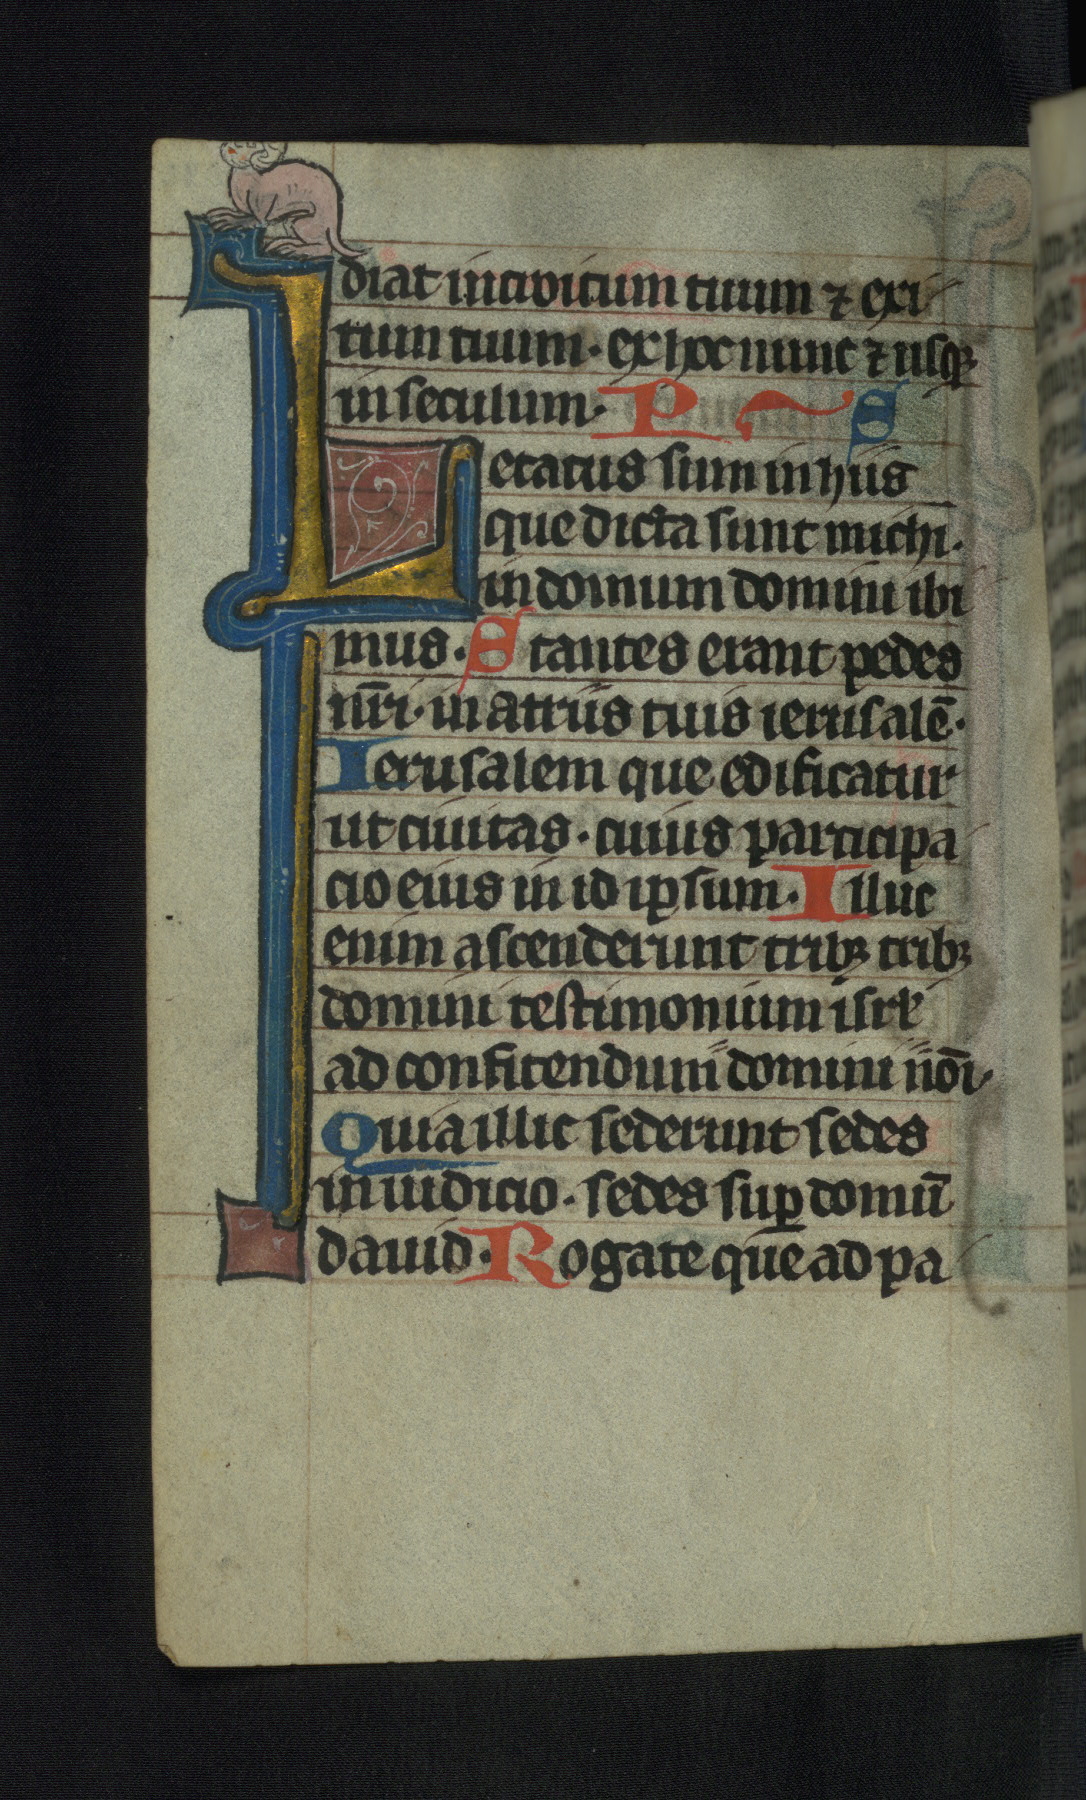 diat introitum tuum ⁊ exi
tum tuum. ex hoc nunc ⁊ usq3
in seculum. P S
Letatus sum in hiis
que dicta sunt michi.
in domum domini ibi
mus. Stantes erant pedes
nr̄i. in atriis tuis ierusalē.
Ierusalem que edificatur
ut ciuitas. cuius participa
cio eius in id ip̄sum. Illuc
enim ascenderunt trib3 trib3
domini testimonium isrl̓
ad confitendum domini nōi
Quia illic sederunt sedes
in iudicio. sedes suꝑ domū
dauid. Rogate que ad pa